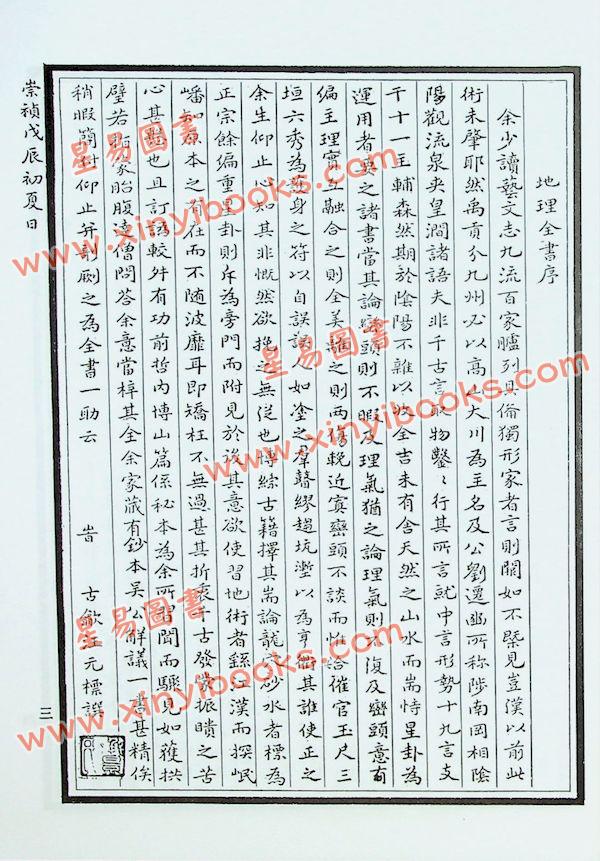 地理全書序
余少讀藝文志九流百家臚列具俻獨形家者言則闕如不槩見豈漢以前此
術未肇耶然禹貢分九州必以高山大川為主名及公劉遷豳所称陟南岡相陰
陽觀流泉夾皇澗諸語夫非千古言取物鑿〻行其所言就中言形勢十九言支
干十一主輔森然期於陰陽不雜以收全吉未有舍天然之山水而耑恃星卦為
運用者奠之諸書當其論巒頭則不暇及理氣猶之論理氣則不復及巒頭意有
偏主理實互融合之則全美離之則两傷輓近寘巒頭不談而惟詒催官玉尺三
垣六秀為護身之符以自誤誤人如塗之羣瞽繆趨坑壍以為亨衢其誰使正之
余生仰止心知其非慨然欲挽之無従也博綜古籍擇其耑論龍穴砂水者標為
正宗餘編重星卦則斥為旁門而附見於後其意欲使習地術者繇江漢而探岷
嶓知原本之有在而不随波靡耳即矯枉不無過甚其折衷千古發蒙振聵之苦
心甚懃也且訂譌較舛有功前哲内博山篇係秘本為余所習聞而驟見如獲拱
璧若 家胎腹逵僧問答余意當梓其全余家藏有鈔本吴公解議一書甚精俟
稍暇簡付仰止并剞劂之為全書一助云
旹 古歙 元標譔
崇禎戊辰初夏日
三
星易图書
www.xinyibooks.com
星易图書
www.xinyibooks.com
星易图書
www.xinyibooks.com